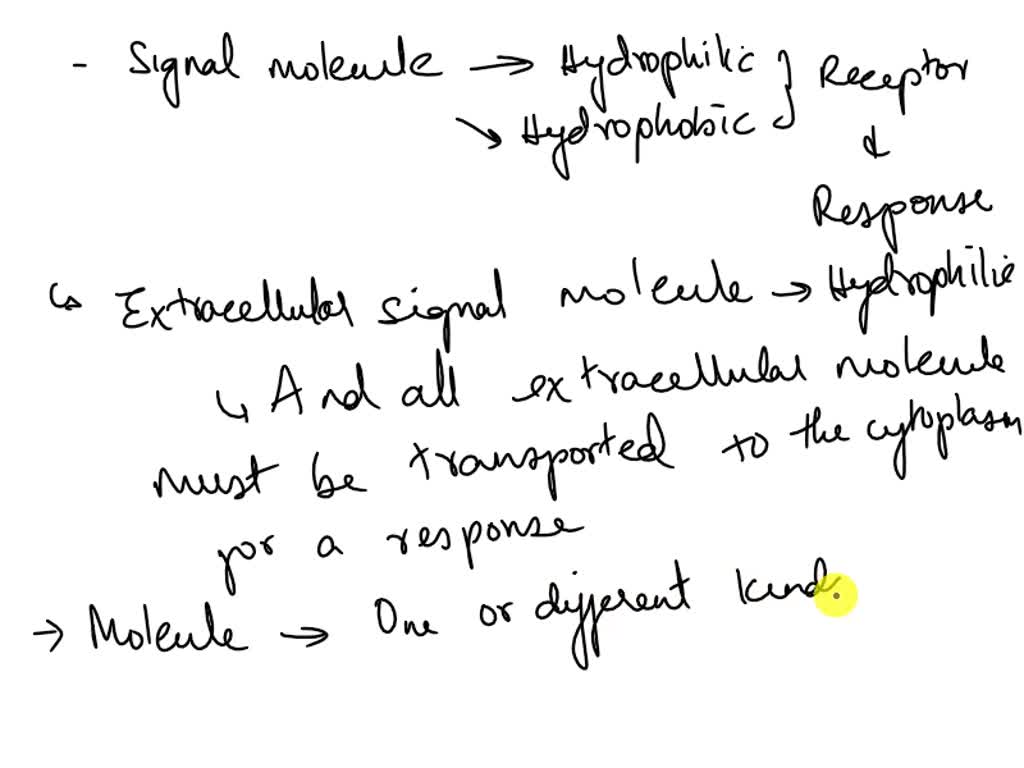 - Signal molecule → Hydrophilic } Receptor
↘ Hydrophobic &
Response
↳ Extracellular signal molecule → Hydrophilic
↳ And all extracellular molecule
must be transported to the cytoplasm
for a response
→ Molecule → One or different kind